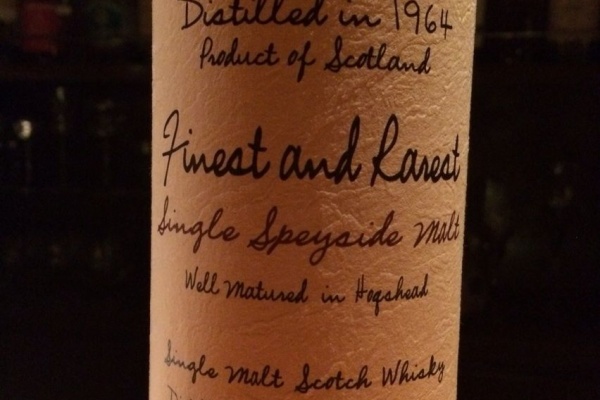 Distilled in 1964
Product of Scotland
Finest and Rarest
Single Speyside Malt
Well Matured in Hogshead
Single Malt Scotch Whisky